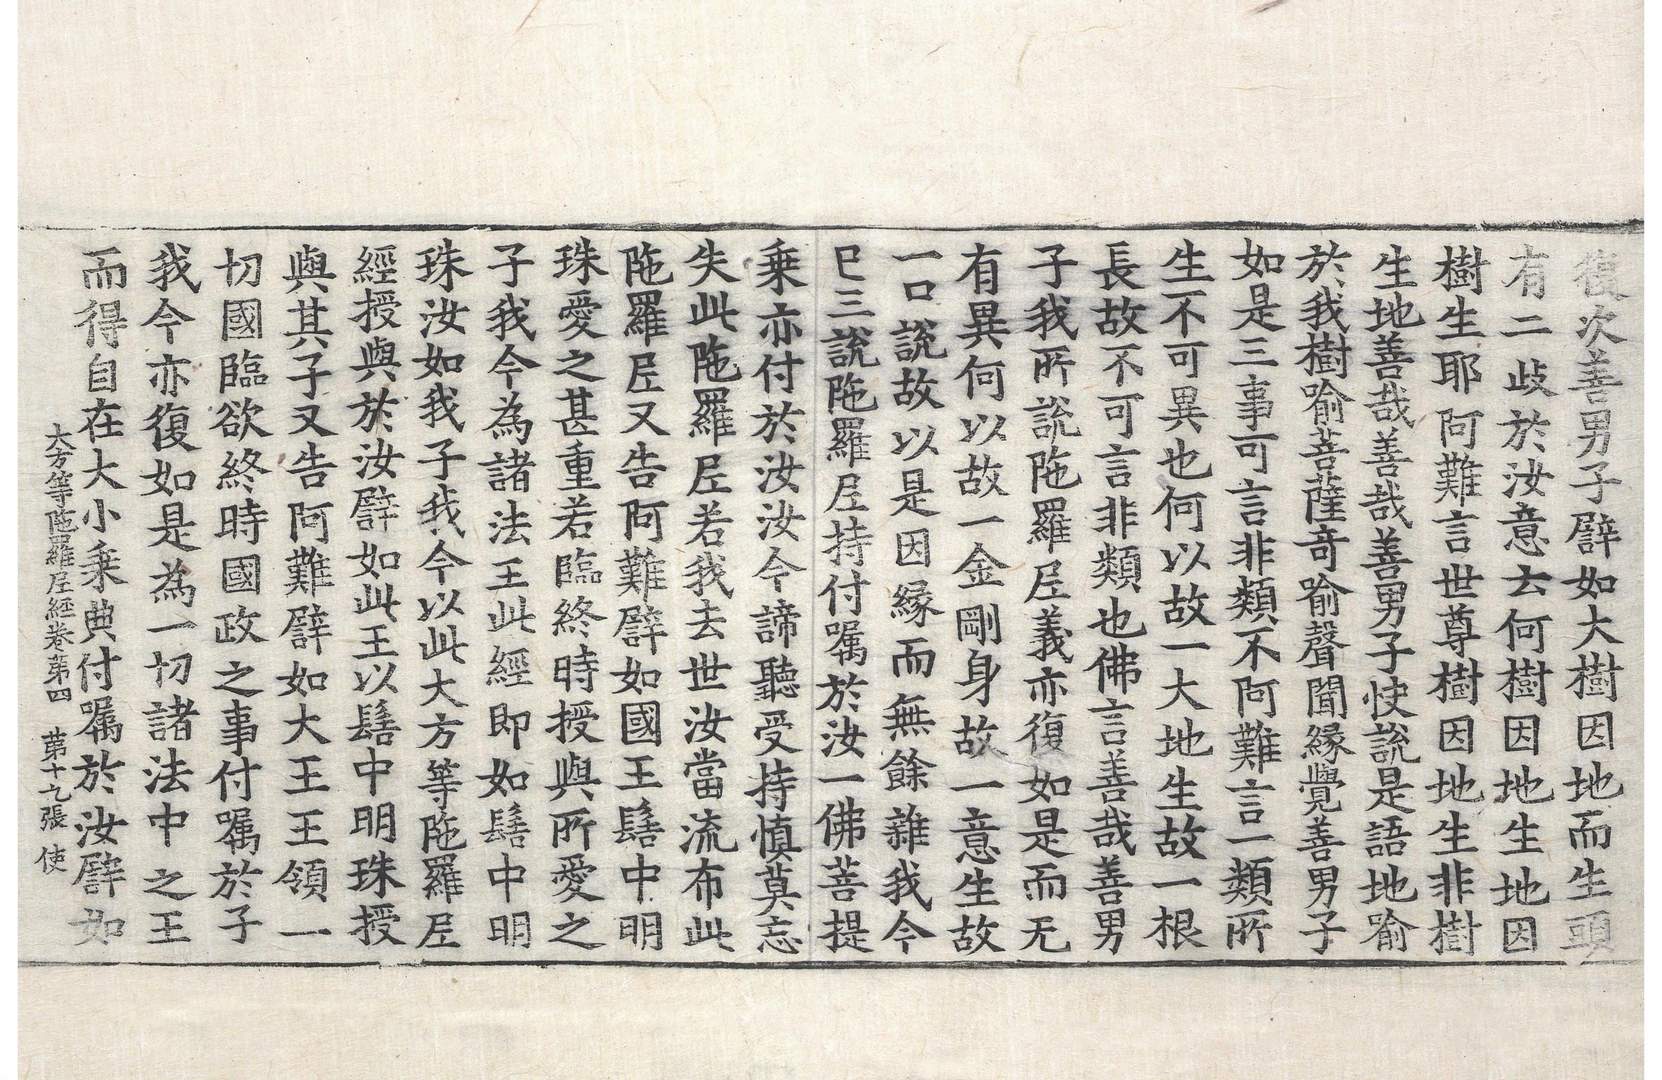 復次善男子譬如大樹因地而生頭
有二歧於汝意云何樹因地生地因
樹生耶阿難言世尊樹因地生非樹
生地善哉善哉善男子快說是語地喻
於我樹喻菩薩竒喻聲聞緣覺善男子
如是三事可言非類不阿難言一類所
生不可異也何以故一大地生故一根
長故不可言非類也佛言善哉善男
子我所說陁羅尼義亦復如是而无
有異何以故一金剛身故一意生故
一口說故以是因緣而無餘雜我今
已三說陁羅尼持付嘱於汝一佛菩提
乗亦付於汝汝今諦聽受持慎莫忘
失此陁羅尼若我去世汝當流布此
陁羅尼又告阿難譬如國王髻中明
珠愛之甚重若臨終時授與所愛之
子我今為諸法王此經即如髻中明
珠汝如我子我今以此大方等陁羅尼
經授與於汝譬如此王以髻中明珠授
與其子又告阿難譬如大王王領一
切國臨欲終時國政之事付嘱於子
我今亦復如是為一切諸法中之王
而得自在大小乗典付嘱於汝譬如
大方等陁羅尼經卷第四　第十九張　使